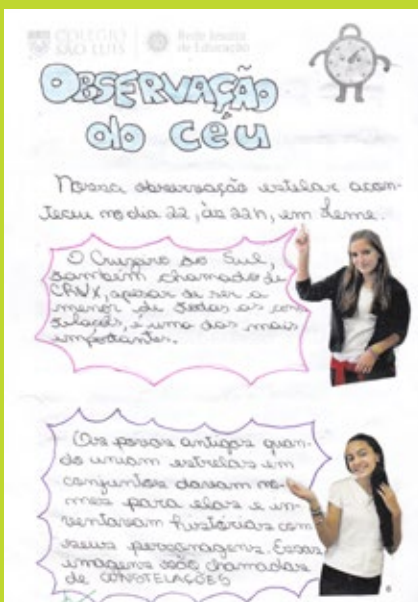 COLÉGIO
SÃO LUÍS
Rede Jesuíta
de Educação
OBSERVAÇÃO
do céu
Nossa observação estelar acon-
teceu no dia 22, às 22h, em Leme.
O Cruzeiro do Sul,
também chamado de
CRUX, apesar de ser a
menor de todas as cons
telações, é uma das mais
importantes.
Os povos antigos quan-
do uniam estrelas em
conjuntos davam no-
mes para elas e in-
ventavam histórias com
seus personagens. Essas
imagens são chamadas
de CONSTELAÇÕES